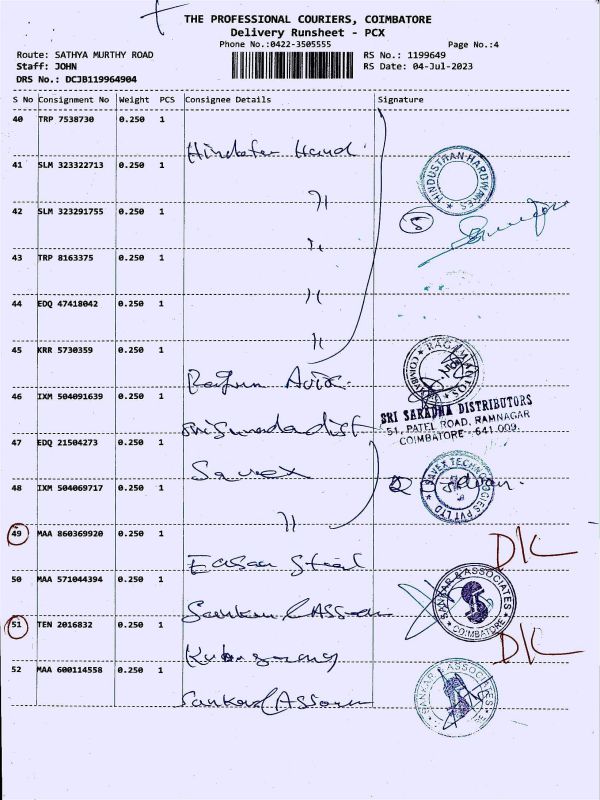 THE PROFESSIONAL COURIERS, COIMBATORE
Delivery Runsheet - PCX
Phone No.:0422-3505555
Page No.:4
Route: SATHYA MURTHY ROAD
RS No.: 1199649
Staff: JOHN
RS Date: 04-Jul-2023
DRS No.: DCJB119964904
S No Consignment No Weight PCS Consignee Details Signature
40 TRP 7538730 0.250 1
41 SLM 323322713 0.250 1
HINDUSTHAN HARDWARES
42 SLM 323291755 0.250 1
5
43 TRP 8163375 0.250 1
44 EDQ 47418042 0.250 1
45 KRR 5730359 0.250 1
46 IXM 504091639 0.250 1
SRI SARADHA DISTRIBUTORS
51, PATEL ROAD, RAMNAGAR
COIMBATORE - 641 009.
47 EDQ 21504273 0.250 1
Savex
SAVEX TECHNOLOGIES PVT LTD
48 IXM 504069717 0.250 1
49 MAA 860369920 0.250 1
D/L
Easan Steel
50 MAA 571044394 0.250 1
SANKAR & ASSOCIATES
COIMBATORE
51 TEN 2016832 0.250 1
D/L
52 MAA 600114558 0.250 1
SANKAR & ASSOCIATES